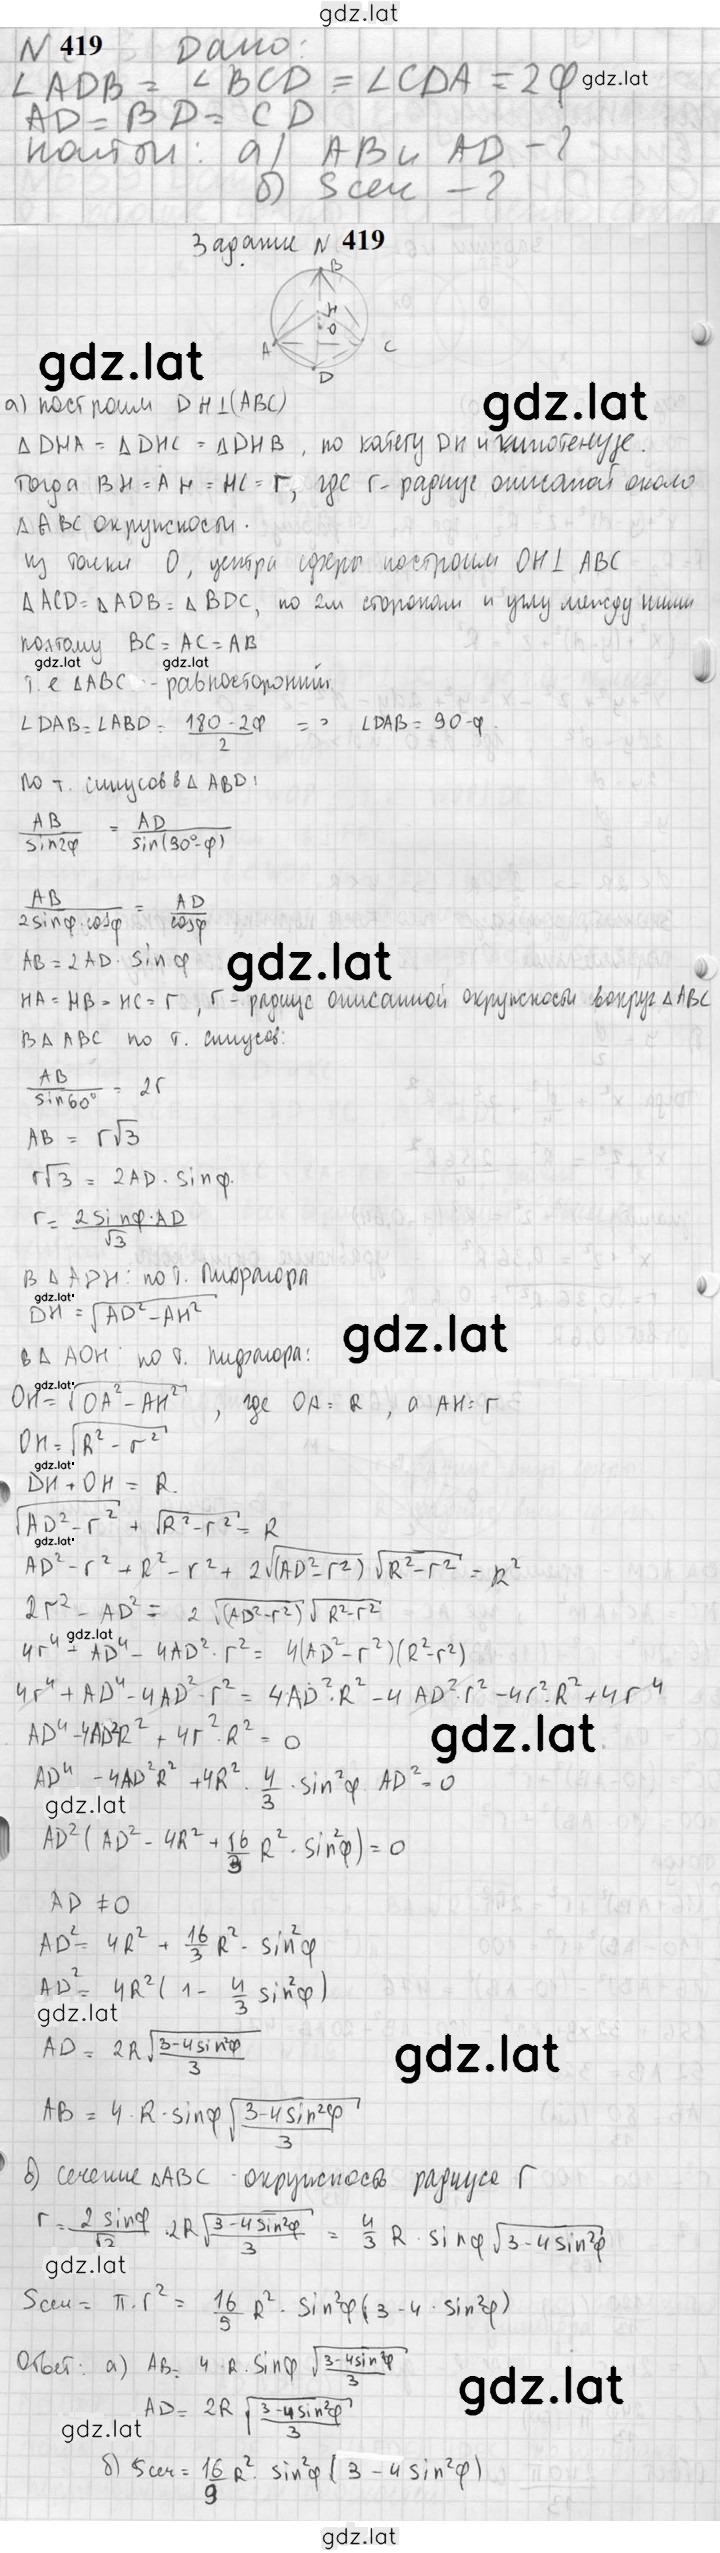 gdz.lat
N 419 Дано:
∠ADB = ∠BCD = ∠CDA = 2φ
gdz.lat
AD = BD = CD
Найти: а) AB и AD - ?
б) Sсеч - ?
Задание N 419
B
H
O
A
C
D
gdz.lat
gdz.lat
а) построим DH⊥(ABC)
△DHA = △DHC = △DHB, по катету DH и гипотенузе.
Тогда BH = AH = HC = r, где r - радиус описаной около
△ABC окружности.
Из точки O, центра сферы построим OH⊥ABC
△ACD = △ADB = △BDC, по 2м сторонам и углу между ними
поэтому BC = AC = AB
gdz.lat gdz.lat
т.е △ABC - равносторонний
∠DAB = ∠ABD = (180 - 2φ)/2 => ∠DAB = 90 - φ.
По т. синусов в △ABD:
AB/sin2φ = AD/sin(90° - φ)
AB/2sinφ·cosφ = AD/cosφ
AB = 2AD · sinφ
gdz.lat
HA = HB = HC = r, r - радиус описанной окружности вокруг △ABC
В △ABC по т. синусов:
AB/sin60° = 2r
AB = r√3
r√3 = 2AD · sinφ.
r = 2sinφ·AD/√3
В △ADH: по т. Пифагора
gdz.lat
DH = √(AD² - AH²)
gdz.lat
в △AOH по т. Пифагора:
gdz.lat
OH = √(OA² - AH²), где OA = R, а AH = r
OH = √(R² - r²)
gdz.lat
DH + OH = R.
√(AD² - r²) + √(R² - r²) = R
gdz.lat
AD² - r² + R² - r² + 2√(AD² - r²) √(R² - r²) = R²
2r² - AD² = 2√(AD² - r²) √(R² - r²)
gdz.lat
4r⁴ + AD⁴ - 4AD² · r² = 4(AD² - r²)(R² - r²)
4r⁴ + AD⁴ - 4AD² · r² = 4AD² · R² - 4AD² · r² - 4r² · R² + 4r⁴
AD⁴ - 4AD²R² + 4r² · R² = 0
gdz.lat
AD⁴ - 4AD²R² + 4R² · 4/3 · sin²φ AD² = 0
gdz.lat
AD²(AD² - 4R² + 16/3 R² · sin²φ) = 0
AD ≠ 0
AD² = 4R² + 16/3 R² · sin²φ
AD² = 4R²(1 - 4/3 sin²φ)
gdz.lat
AD = 2R√((3 - 4sin²φ)/3)
gdz.lat
AB = 4 · R · sinφ√((3 - 4sin²φ)/3)
б) сечение △ABC - окружность радиуса r
r = 2sinφ/√3 · 2R√((3 - 4sin²φ)/3) = 4/3 R · sinφ√(3 - 4sin²φ)
gdz.lat
Sсеч = π · r² = 16/9 R² · sin²φ(3 - 4 · sin²φ)
Ответ: а) AB = 4 · R · sinφ √((3 - 4sin²φ)/3)
gdz.lat
AD = 2R √((3 - 4sin²φ)/3)
gdz.lat
б) Sсеч = 16/9 R² · sin²φ(3 - 4sin²φ)
gdz.lat